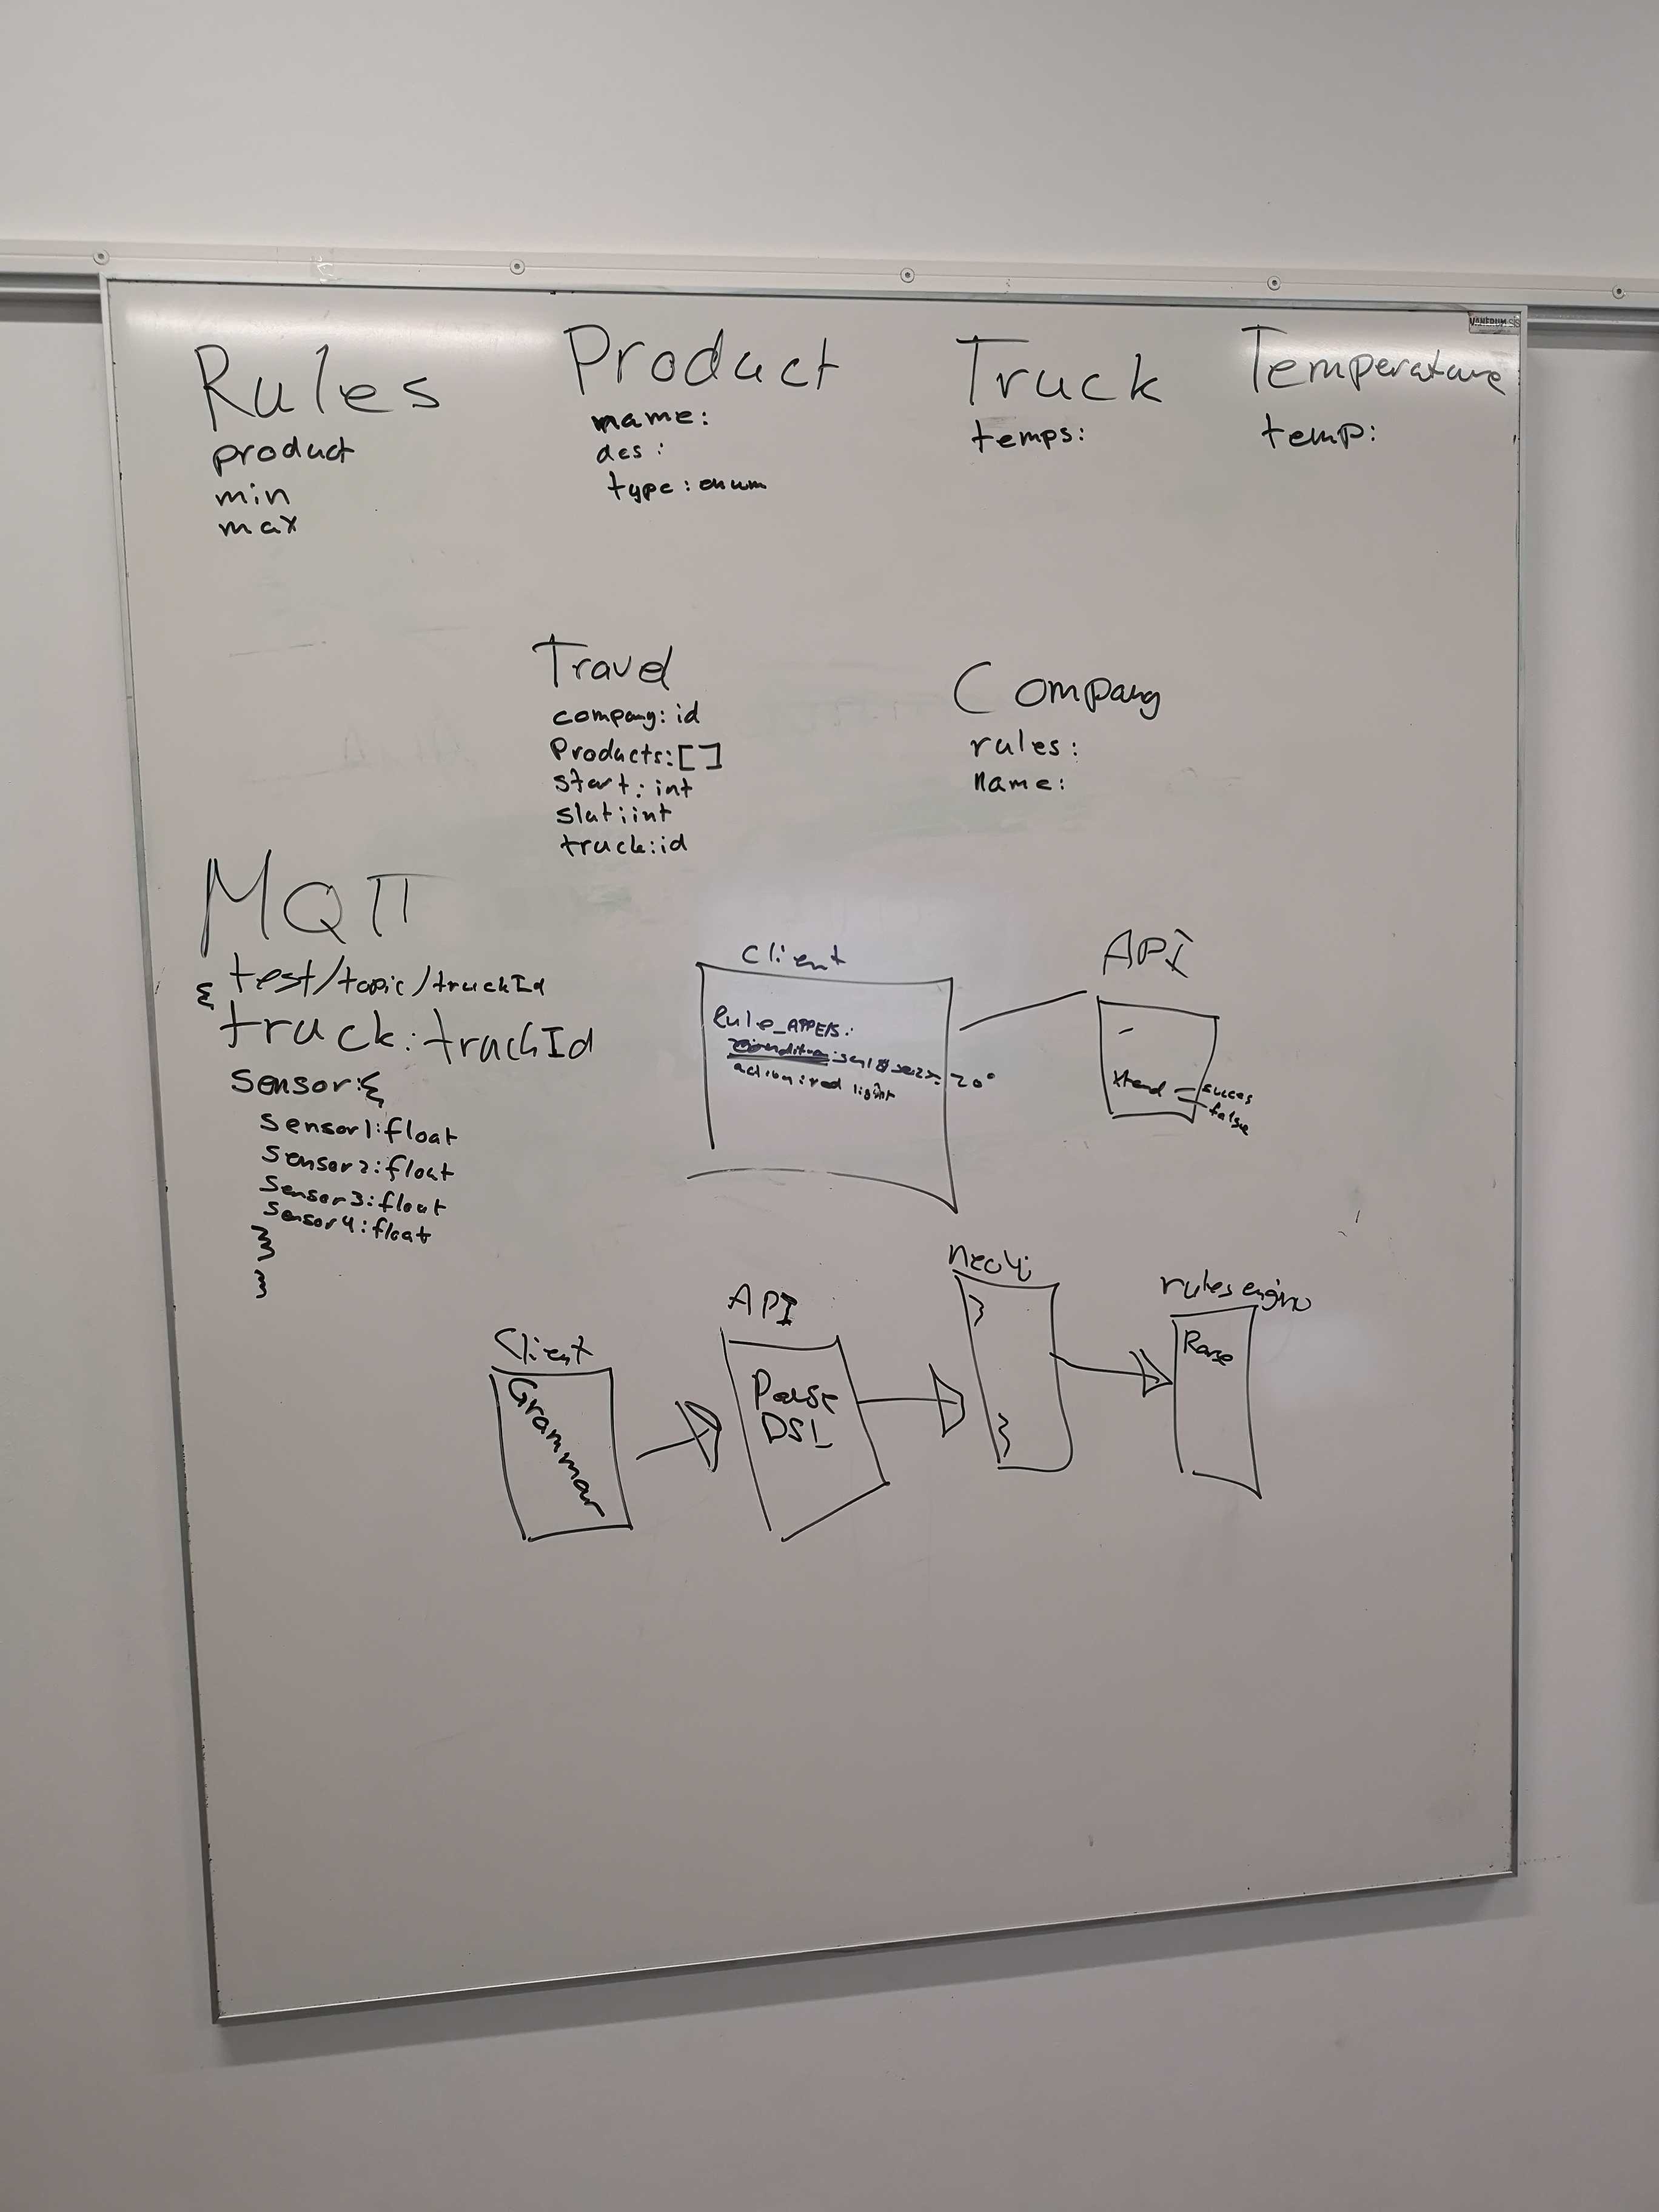 Rules
product
min
max
Product
name:
des:
type: enum
Truck
temps:
Temperature
temp:
Travel
company: id
Products: []
start: int
slut: int
truck: id
Company
rules:
name:
MQTT
test/topic/truckId
{
truck: truckId
Sensor: {
Sensor1: float
Sensor2: float
Sensor3: float
Sensor4: float
}
}
Client
Rule_APPELS:
20°
action: red light
API
-
xtend
succes
false
Client
Grammar
API
Parse
DSL
neo4j
}
}
rules engine